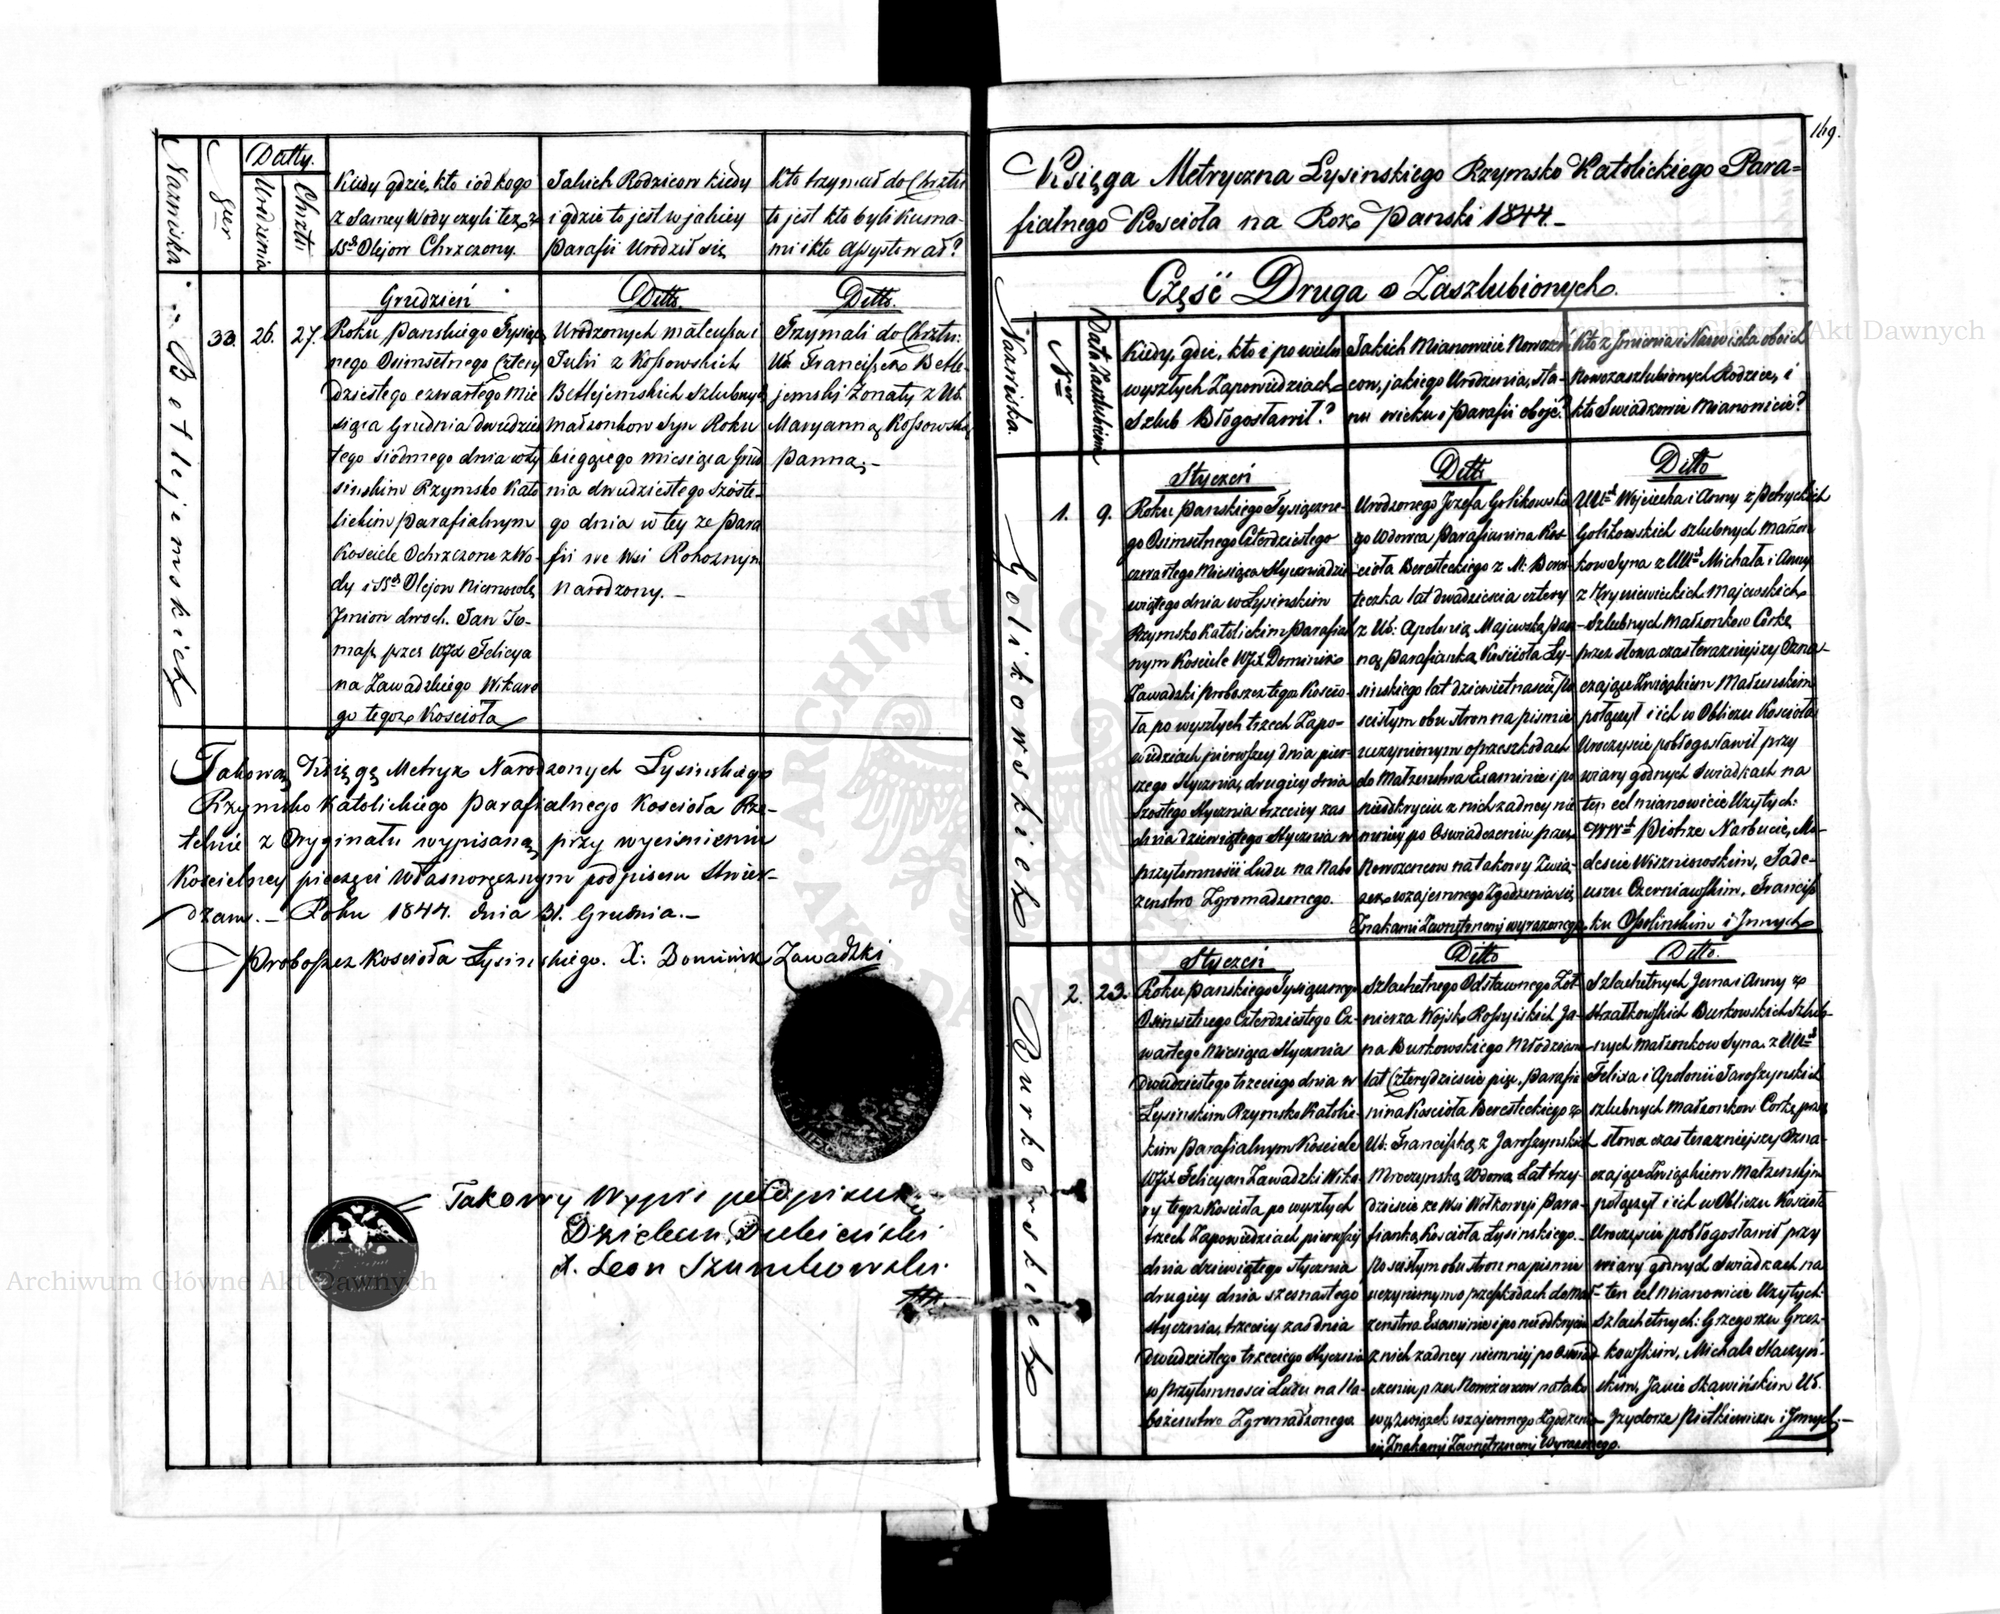 Nazwiska
Ner
Datty.
Urodzenia
Chrztu
Kiedy gdzie, kto i od kogo
z Samey Wody czyli też z
SSch Olejow Chrzczony.
Jakich Rodzicow kiedy
i gdzie to jest w jakiey
Parafii Urodził się
Kto trzymał do Chrztu
to jest kto byli kuma-
mi i kto Assystował?
Betlejemskich
33.
26.
27.
Grudzień
Roku Pańskiego Tysiącz
nego Osimsetnego Cztery
Dziestego czwartego Mie
siąca Grudnia dwudzies
tego siódmego dnia w Ły
sinskim Rzymsko Kato
lickim Parafialnym
Kościele Ochrzczone z Wo-
dy i SSch Olejow Niemowle
Jmion dwoch Jan To-
masz przez WJX Felicya
na Zawadzkiego Wikare
go tegoż Kościoła
Ditto
Urodzonych Mateusza i
Julii z Kossowskich
Betlejemskich Szlubnych
Małżonkow Syn Roku
bieżącego miesiąca Grud
nia dwudziestego Szóste-
go dnia w tey że Para
fii we Wsi Rohoznym
narodzony. -
Ditto.
Trzymali do Chrztu:
Ur. Franciszek Betle-
jemski Żonaty z Ur.
Maryanną Kossowską
Panną. -
Takową Księgę Metryk Narodzonych Łysinskiego
Rzymsko Katolickiego Parafialnego Kościoła Rze-
telnie z Oryginału wypisaną przy wyciśnieniu
Kościelney pieczęci Własnoręcznym podpisem Stwier-
dzam. - Roku 1844. dnia 31. Grudnia. -
Proboszcz Kościoła Łysinskiego. X: Dominik Zawadzki
Takowy Wypis podpisuie
Dziekan Dubieński
X. Leon Szumkowski.
169.
Księga Metryczna Łysinskiego Rzymsko Katolickiego Para-
fialnego Kościoła na Rok Pański 1844. -
Część Druga o Zaszlubionych.
Nazwiska.
Ner
Data Zaszlubienia
Kiedy, gdzie, kto i po wielu
wyszłych Zapowiedziach
Szlub Błogosławił?
Jakich Mianowicie Nowożen
cow, jakiego Urodzenia, Sta-
nu wieku i Parafii oboje?
Kto z Jmienia i Nazwiska oboich
Nowozaszlubionych Rodzice, i
kto Swiadkowie Mianowicie?
Golikowskich
1.
9.
Styczeń
Roku Pańskiego Tysiączne-
go Osimsetnego Czterdziestego
czwartego Miesiąca Stycznia dzie-
wiątego dnia w Łysinskim
Rzymsko Katolickim Parafial
nym Kościele WJX Dominik
Zawadzki Proboszcz tegoż Koscio-
ła po wyszłych trzech Zapo-
wiedziach pierwszey dnia pier-
szego Stycznia, drugiey dnia
Szóstego Stycznia trzeciey zas
dnia dziewiątego Stycznia w
przytomności Ludu na Nabo
żenstwo Zgromadzonego.
Ditto
Urodzonego Jozefa Golikowskie
go Wdowca Parafianina Koś-
cioła Beresteckiego z M: Beres
teczka lat dwadzieścia cztery
z Ur: Apolonią Majewską Pan
ną Parafianką Kościoła Ły-
sinskiego lat dziewietnaście, Po
scisłym obu stron na piśmie
uczynionym o przeszkodach
do Małżenstwa Examinie i po
nieodkryciu z nich żadney nie
mniey po Oswiadczeniu przez
Nowożencow na takowy Zwią-
zek wzajemnego Zgodzenia się
Znakami Zewnętrznemi wyrażonego
Ditto
UUch Wojciecha i Anny z Petryckich
Golikowskich szlubnych Małżon
kow Syna z UUch Michała i Anny
z Hryniewieckich Majewskich
Szlubnych Małżonkow Corkę
przez słowa czas teraźniejszy Ozna-
czające Związkiem Małżenskim
połączył i ich w Obliczu Kościoła
Uroczyscie pobłogosławił przy
wiary godnych Swiadkach na
ten cel mianowicie Użytych:
WWch Piotrze Narbucie, Mo-
deście Wiszniowskim, Tade-
uszu Czerniawskim, Francisz
ku Opolinskim i Jnnych
Burkowskich
2.
23.
Styczeń
Roku Pańskiego Tysiącznego
Osimsetnego Czterdziestego Cz-
wartego Miesiąca Stycznia
dwudziestego trzeciego dnia w
Łysinskim Rzymsko Katolic-
kim Parafialnym Kościele
WJX Felicyan Zawadzki Wika-
ry tegoż Kościoła po wyszłych
trzech Zapowiedziach pierwszey
dnia dziewiątego Stycznia
drugiey dnia szesnastego
Stycznia, trzeciey zas dnia
Dwudziestego trzeciego Stycznia
w Przytomności Ludu na Na-
bożenstwo Zgromadzonego.
Ditto
Szlachetnego Odstawnego Żoł
nierza Woysk Rossyiskich Ja-
na Burkowskiego Młodziana
lat Czterydzieście pięć, Parafia
nina Kościoła Beresteckiego z
Ur: Franciszką z Jaroszynskich
Mroczynską Wdową Lat trzy-
dzieście ze Wsi Wołkowyi Para-
fianką Kościoła Łysinskiego. -
Po scisłym obu stron na piśmie
uczynionym o przeszkodach do Mał-
żenstwa Examinie i po nieodkryciu
z nich żadney niemniey po Oswiad-
czeniu przez Nowożencow na tako
wy Związek wzajemnego Zgodzenia
się Znakami Zewnętrznemi Wyrażonego.
Ditto.
Szlachetnych Jana i Anny z
Strzałkowskich Burkowskich Szlub-
nych Małżonkow Syna, z UUch
Felixa i Apolonii Jaroszynskich
szlubnych Małżonkow Corkę przez
słowa czas teraźniejszy Ozna-
czające Związkiem Małżenskim
połączył i ich w Obliczu Kościoła
Uroczyscie pobłogosławił przy
wiary godnych Swiadkach na
ten cel Mianowicie Użytych:
Szlachetnych: Grzegorzu Grocz-
kowskim, Michale Staczyń-
skim, Janie Sławińskim Ur.
Jzydorze Pietkiewiczu i Jnnych. -
Archiwum Główne Akt Dawnych
Archiwum Główne Akt Dawnych